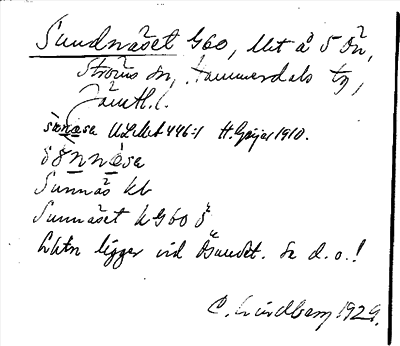 Sundnäset G60, lht å S Ön,
Ströms sn, Hammerdals tg,
Jämtl. l.
sùnnesa ULMA 446:1 H. Geijer 1910.
Sunnäs kb
Sunnäset k G60 ö
Lhtn ligger vid Ösundet. Se d. o.!
C. Lindberg 1929.